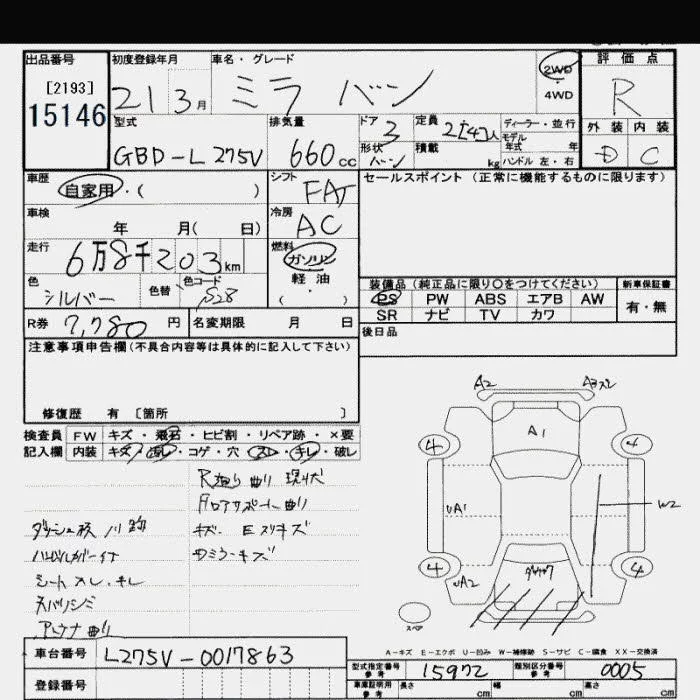 出品番号
[2193]
15146
初度登録年月
21 3月
車名・グレード
ミラ バン
2WD
4WD
評価点
R
型式
GBD-L275V
排気量
660cc
ドア
3
形状
バン
定員
2[4]人
積載
kg
ディーラー・並行
モデル
年式 年
ハンドル 左・右
外装 内装
D C
車歴
自家用・( )
シフト
FAT
セールスポイント(正常に機能するものに限ります)
車検
年 月( 日)
冷房
AC
走行
6万8千203km
燃料
ガソリン
軽油
( )
色
シルバー
色替
色コード
S28
装備品(純正品に限り○をつけてください)
新車保証書
PS PW ABS エアB AW
有・無
SR ナビ TV カワ
R券
7,780円
名変期限 月 日
後日品
注意事項申告欄(不具合内容等は具体的に記入して下さい)
修復歴 有 [箇所 ]
検査員 FW キズ・飛石・ヒビ割・リペア跡・×要
記入欄 内装 キズ・汚レ・コゲ・穴・スレ・キレ・破レ
曲り 現状
フロアサポート曲り
キズ・Eスリキズ
サミラーキズ
シートスレ・キレ
ネバリジミ
アンテナ曲り
A2
A3スレ
A1
4
4
UA1
W2
4
4
UA2
スペア
A-キズ E-エクボ U-凹み W-補修跡 S-サビ C-腐食 XX-交換済
車台番号
L275V-0017863
登録番号
型式指定番号
参考
15972
類別区分番号
参考
0005
車庫証明用
参考
長さ cm
幅 cm
高さ cm